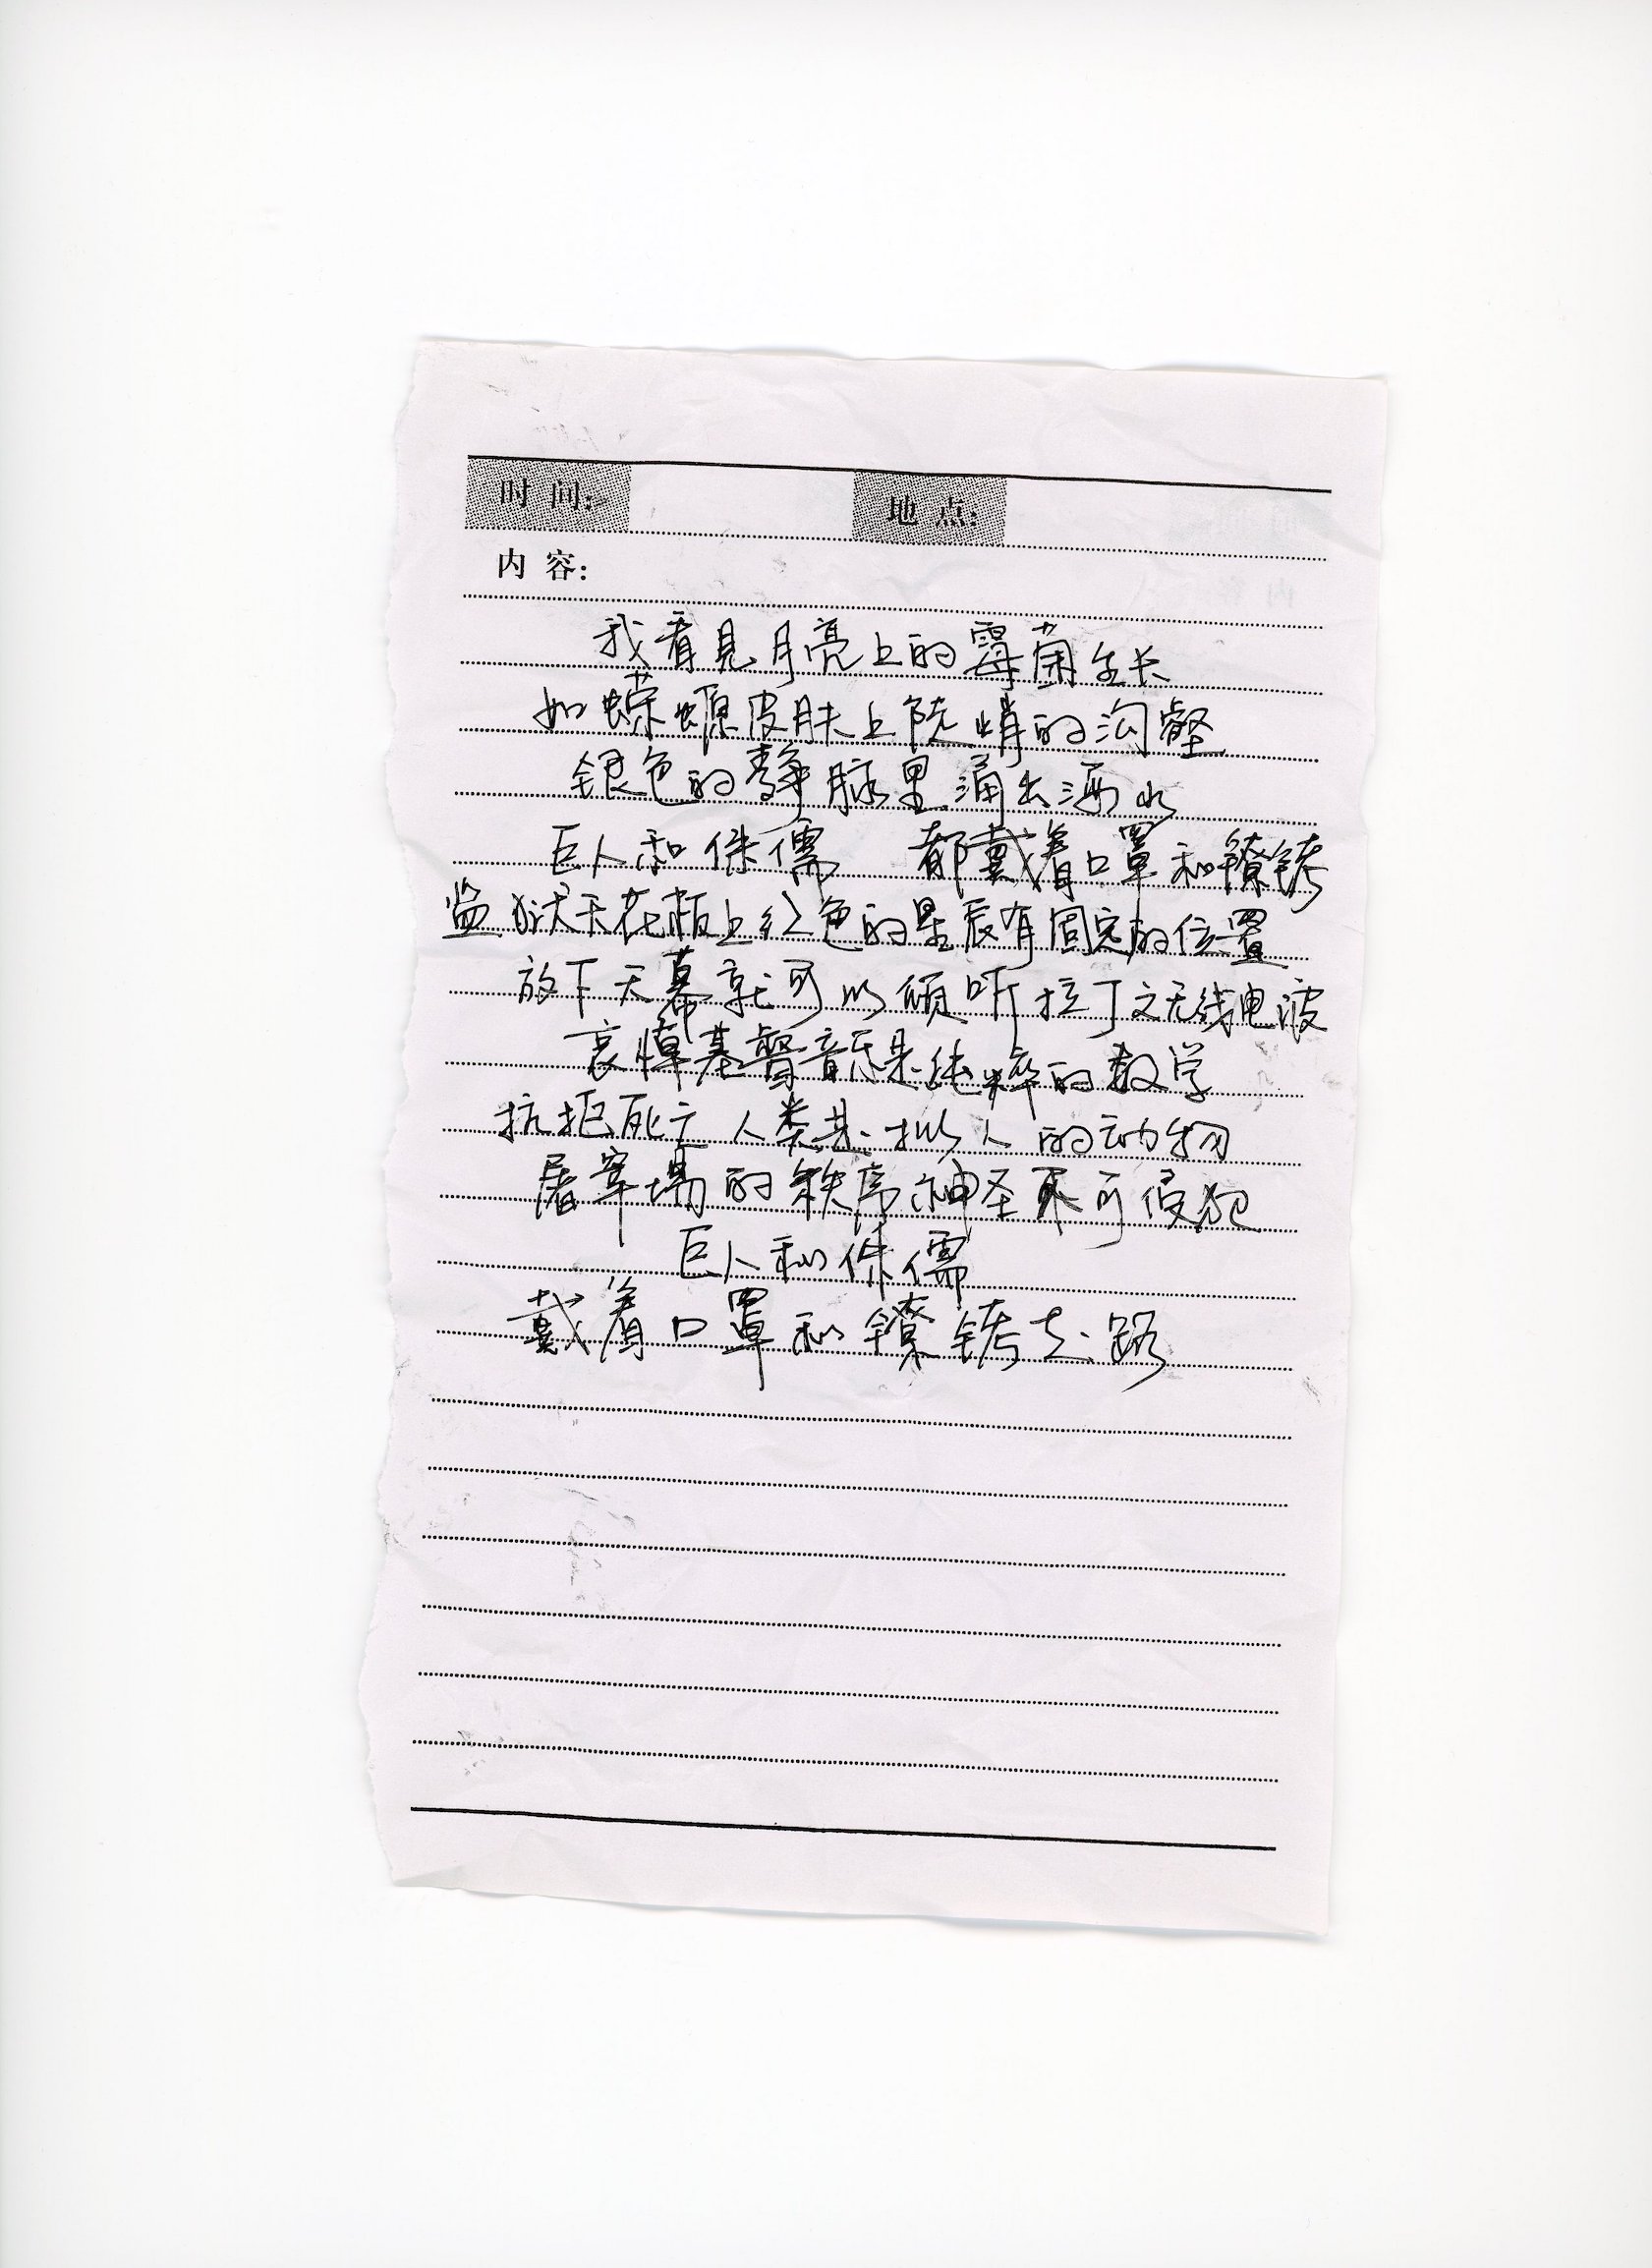 时间： 地点：
内容：
我看见月亮上的霉菌生长
如蝾螈皮肤上陡峭的沟壑
银色的静脉里涌出酒水
巨人和侏儒 都戴着口罩和镣铐
监狱天花板上红色的星辰有固定的位置
放下天幕就可以倾听拉丁文无线电波
哀悼基督音乐是纯粹的数学
抗拒死亡人类是拟人的动物
屠宰场的秩序神圣不可侵犯
巨人和侏儒
戴着口罩和镣铐走路